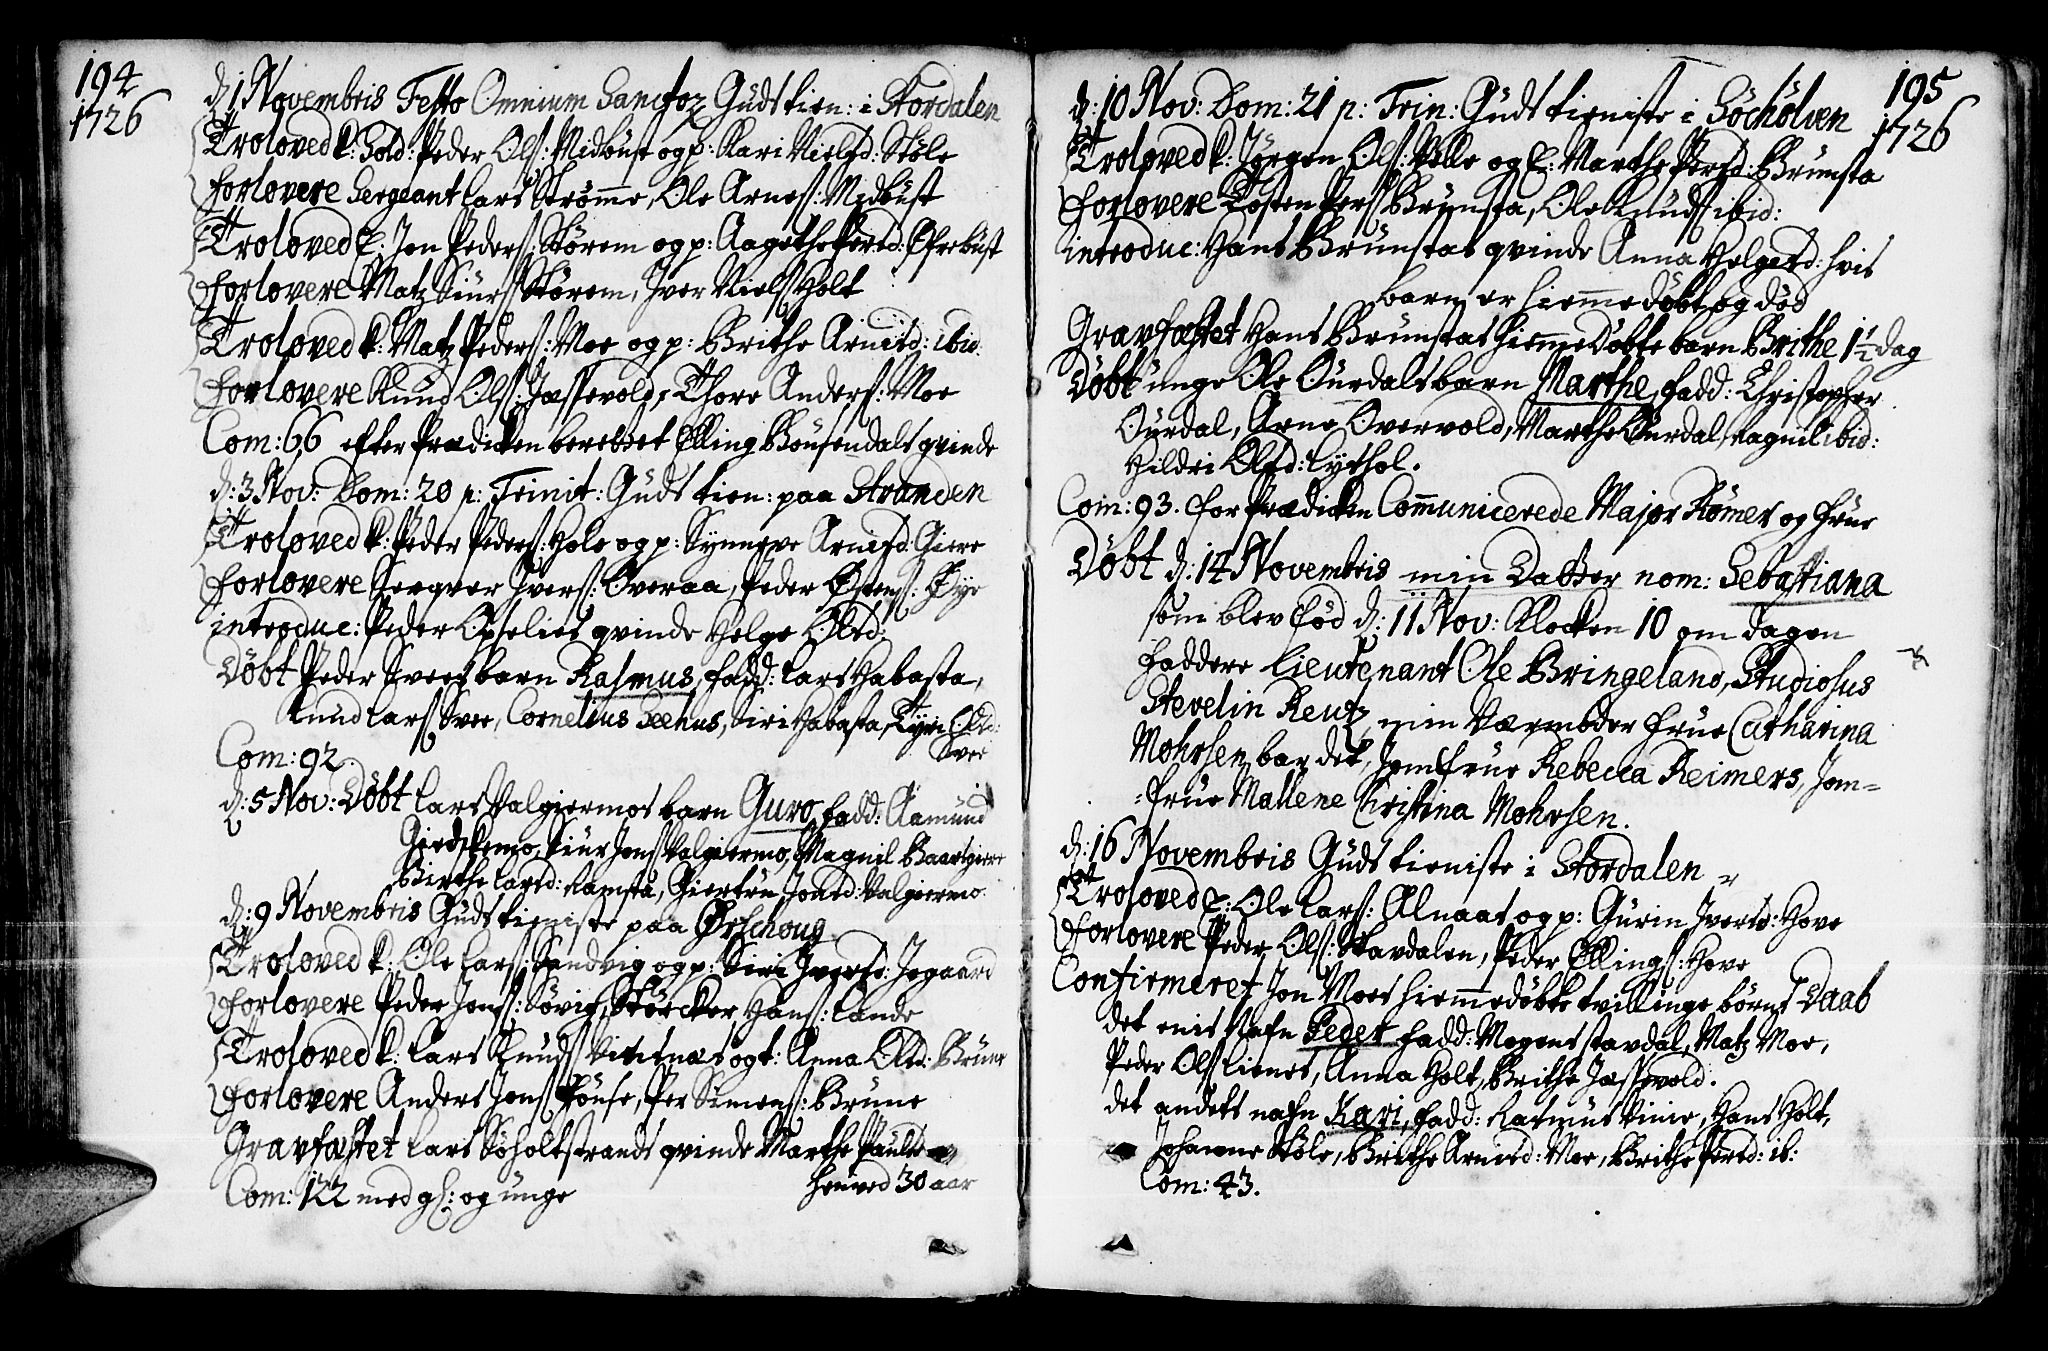 194
1726
d: 1 Novembris Festo Omnium Sanctor Guds tien: i Stordalen
Troloved k: Sold: Peder Ols: Midbust og p: Kari Nielsd: Støle
forlovere Sergeant Lars Strømme, Ole Arnes: Medbust
Troloved E: Jon Peders: Størem og p: Aagethe Persd: Efrebust
forlovere Matz Siurs: Størem, Iver Niels: Holt
Troloved k: Matz Peders: Moe og p: Brithe Arnisd: ibid.
forlovere Knud Ols: Jassevold, Thore Anders: Moe
Com: 66 efter Prædicken berettet Elling Bousendals qvinde
d: 3 Nov: Dom: 20 p: Trinit: Guds tien: paa Stranden
Troloved k: Peder Peders: Hole og p: Synneve Arnisd: Giere
forlovere Ivers: Overaa, Peder Østens: Eye
introduc: Peder Opselies qvinde Helge Olsd:
Døbt Peder Svees barn Rasmus, fadd: Lars Habosta,
Knud Lars: Svee, Cornelius Seehus, Siri Habosta, Olsd:
Svee
Com: 92.
d: 5 Nov: Døbt Lars Valgiermos barn Guro, fadd: Aamund
Giedskemo, Siur Jons: Valgiermo, Magnil Baarsgiere
Birthe Larsd: Ramsta, Giertru Jonsd: Valgiermo.
d: 9 Novembris Guds tieniste paa Ørschoug
Troloved k: Ole Lars: Sandvig og p: Siri Iversd: Jegaard
forlovere Peder Jons: Søvig, Størcker Hans: Lande
Troloved k: Lars Knuds: Vitisnæs og t: Anna Olsd: Brune
forlovere Anders Jons: Pønse, Per Simens: Brune
Gravfæstet Lars Søholtstrands qvinde Marthe Paulsd
henved 30 aar
Com: 122 med gl: og unge
195
1726
d: 10 Nov: Dom: 21 p: Trin: Guds tieniste i Søcholven
Troloved k: Jørgen Ols: Velle og E: Marthe Persd: Brunsta
forlovere Tosten Pers: Brunsta, Ole Knuds: ibid:
introduc: Hans Brunstas qvinde Anna Helgesd: hvis
barn er hiemmedøbt og død
Gravfæstet Hans Brunstas hiemmedøbte barn Brithe 1½ dag
Døbt unge Ole Ourdals barn Marthe, fadd: Christopher
Ourdal, Arne Overvold, Marthe Ourdal, Ragnil ibid:
Hildri Olsd: Lythol.
Com: 93. for Prædicken Communicerede Major Rømer og Frue
Døbt d: 14 Novembris min Datter nom: Sebastiana
som blev fød d: 11 Nov: Klocken 10 om dagen
Faddere Lieutenant Ole Bringeland, Studiosus
Stevelin Reutz, min Værmoder Frue Catharina
Mohrsen bar det, Jomfrue Rebecca Reimers, Jom=
=frue Mallene Christina Mohrsen.
d: 16 Novembris Guds tieniste i Stordalen
Troloved E: Ole Lars: Alnaas og p: Gurin Iversd: Hove
forlovere Peder Ols: Skavdalen, Peder Ellings: Hove
Confirmeret Jon Moes hiemmedøbte tvillinge børns Daab
det enis Nafn Peder fadd: Mogens Stavdal, Matz Moe,
Peder Ols: Lienes, Anna Holt, Brithe Jassevold.
det andets nafn Kari, fadd: Rasmus Vinie, Hans Holt,
Johanne Støle, Brithe Arnisd: Moe, Brithe Persd: ib:
Com: 43.